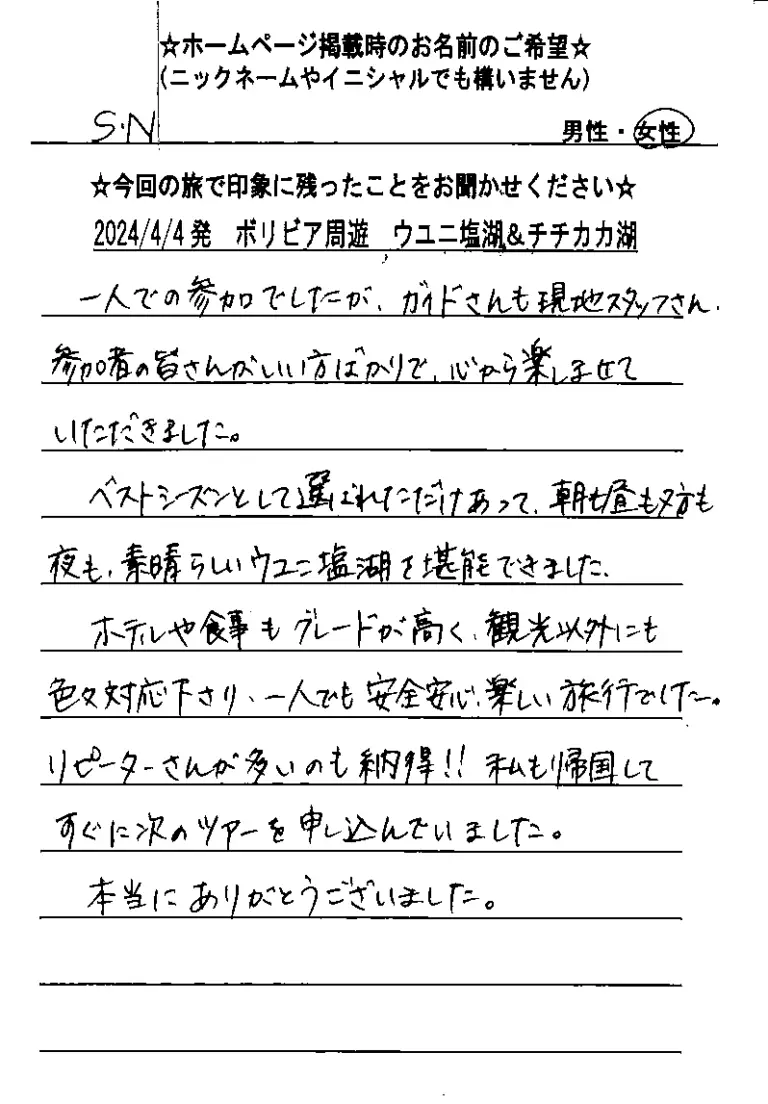 ☆ホームページ掲載時のお名前のご希望☆
(ニックネームやイニシャルでも構いません)
S.N 男性・女性
☆今回の旅で印象に残ったことをお聞かせください☆
2024/4/4発 ボリビア周遊 ウユニ塩湖&チチカカ湖
一人での参加でしたが、ガイドさんも現地スタッフさん、
参加者の皆さんがいい方ばかりで、心から楽しませて
いただきました。
ベストシーズンとして選ばれただけあって、朝も昼も夕方も
夜も、素晴らしいウユニ塩湖を堪能できました。
ホテルや食事もグレードが高く、観光以外にも
色々対応下さり、一人でも安全安心、楽しい旅行でした。
リピーターさんが多いのも納得!! 私も帰国して
すぐに次のツアーを申し込んでいました。
本当にありがとうございました。